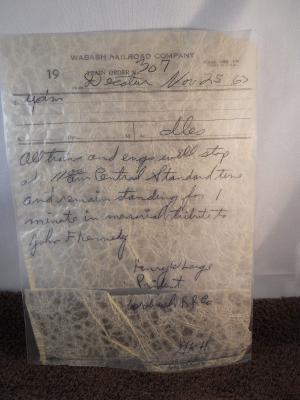 WABASH RAILROAD COMPANY
19 TRAIN ORDER No. 307
Decatur Nov 25 63
Ydm
At
All trains and engs will stop
at 11 am Central Standard time
and remain standing for 1
minute in memorial tribute to
John F Kennedy
Henry W Large
President
Wabash R R Co